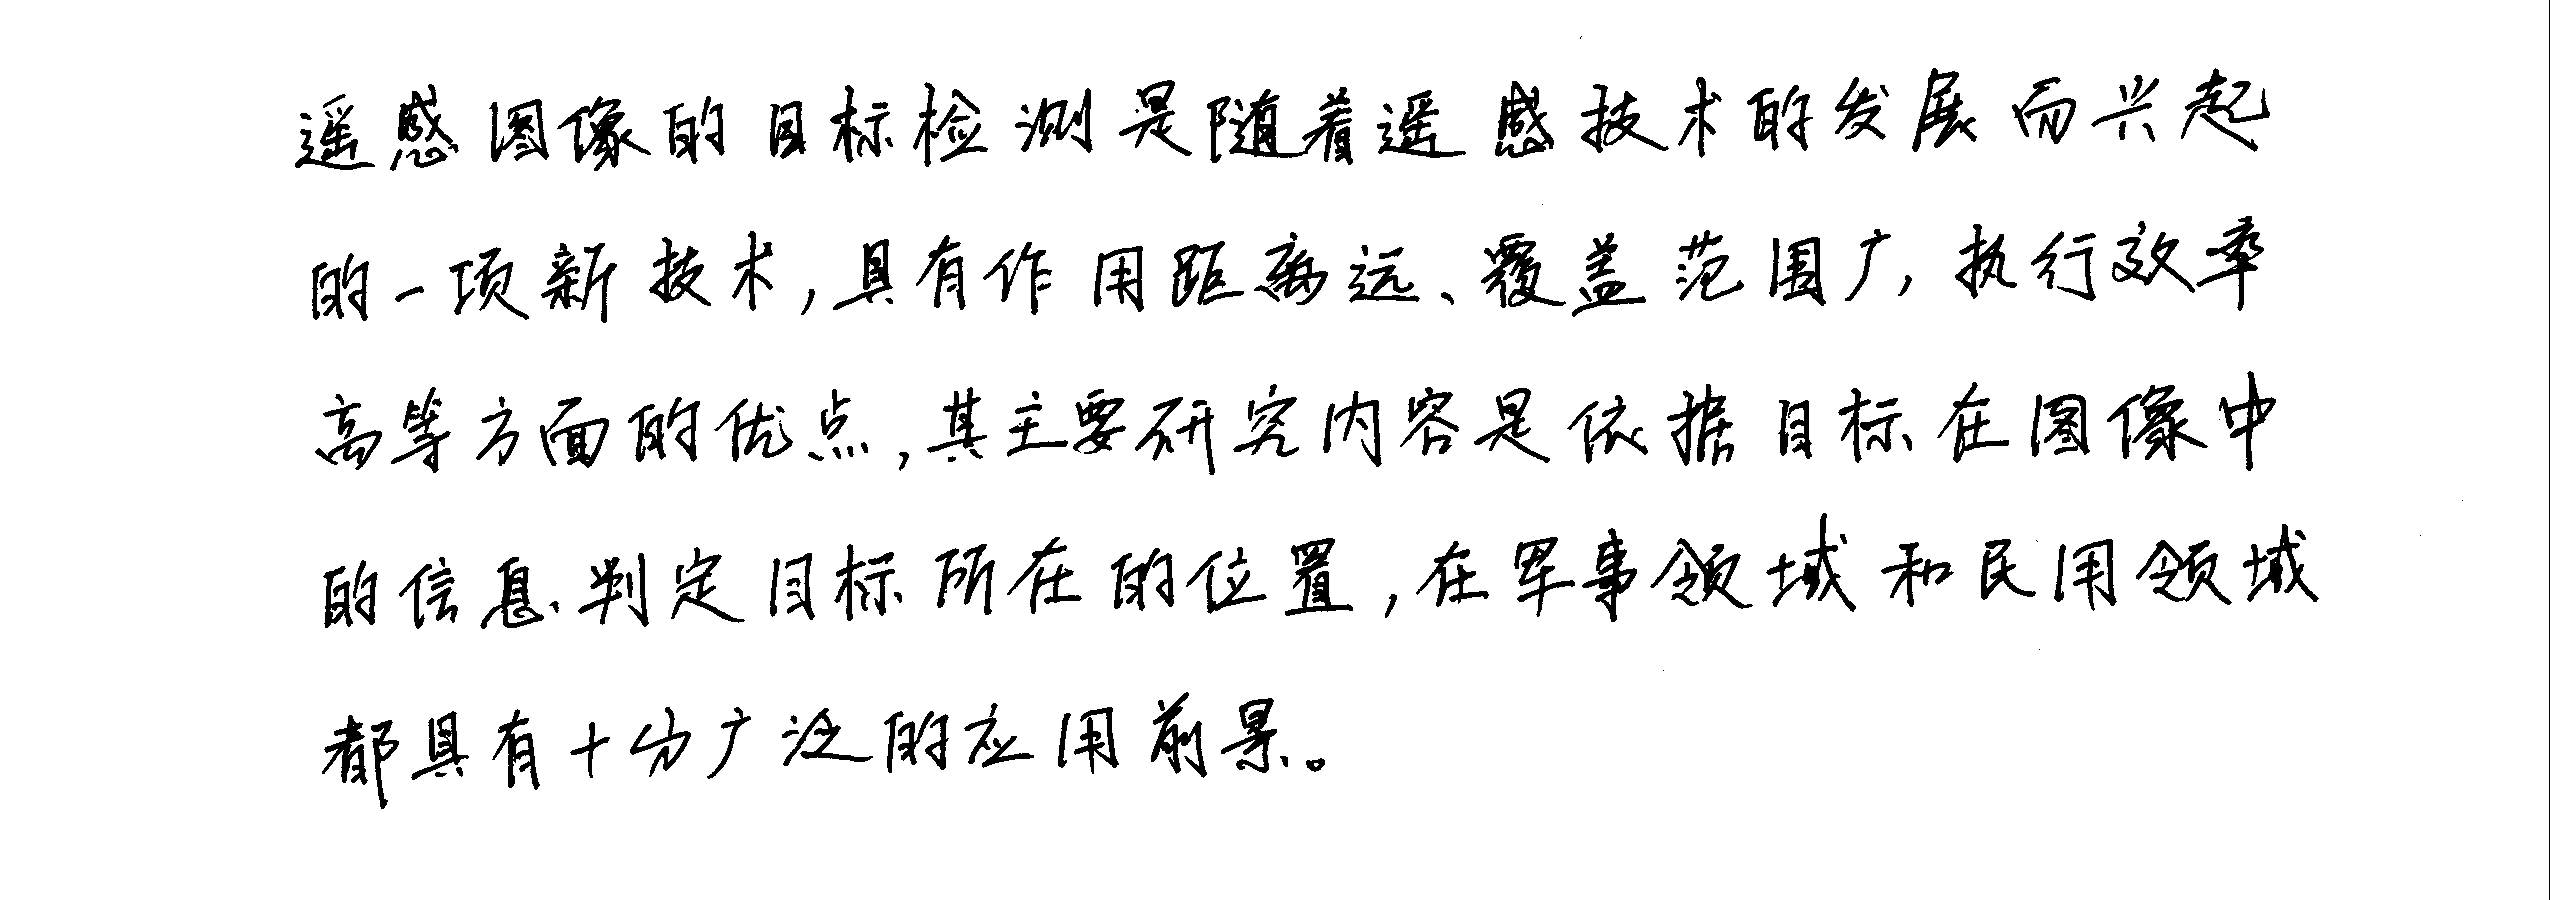 遥感图像的目标检测是随着遥感技术的发展而兴起
的一项新技术,具有作用距离远、覆盖范围广,执行效率
高等方面的优点,其主要研究内容是依据目标在图像中
的信息判定目标所在的位置,在军事领域和民用领域
都具有十分广泛的应用前景。